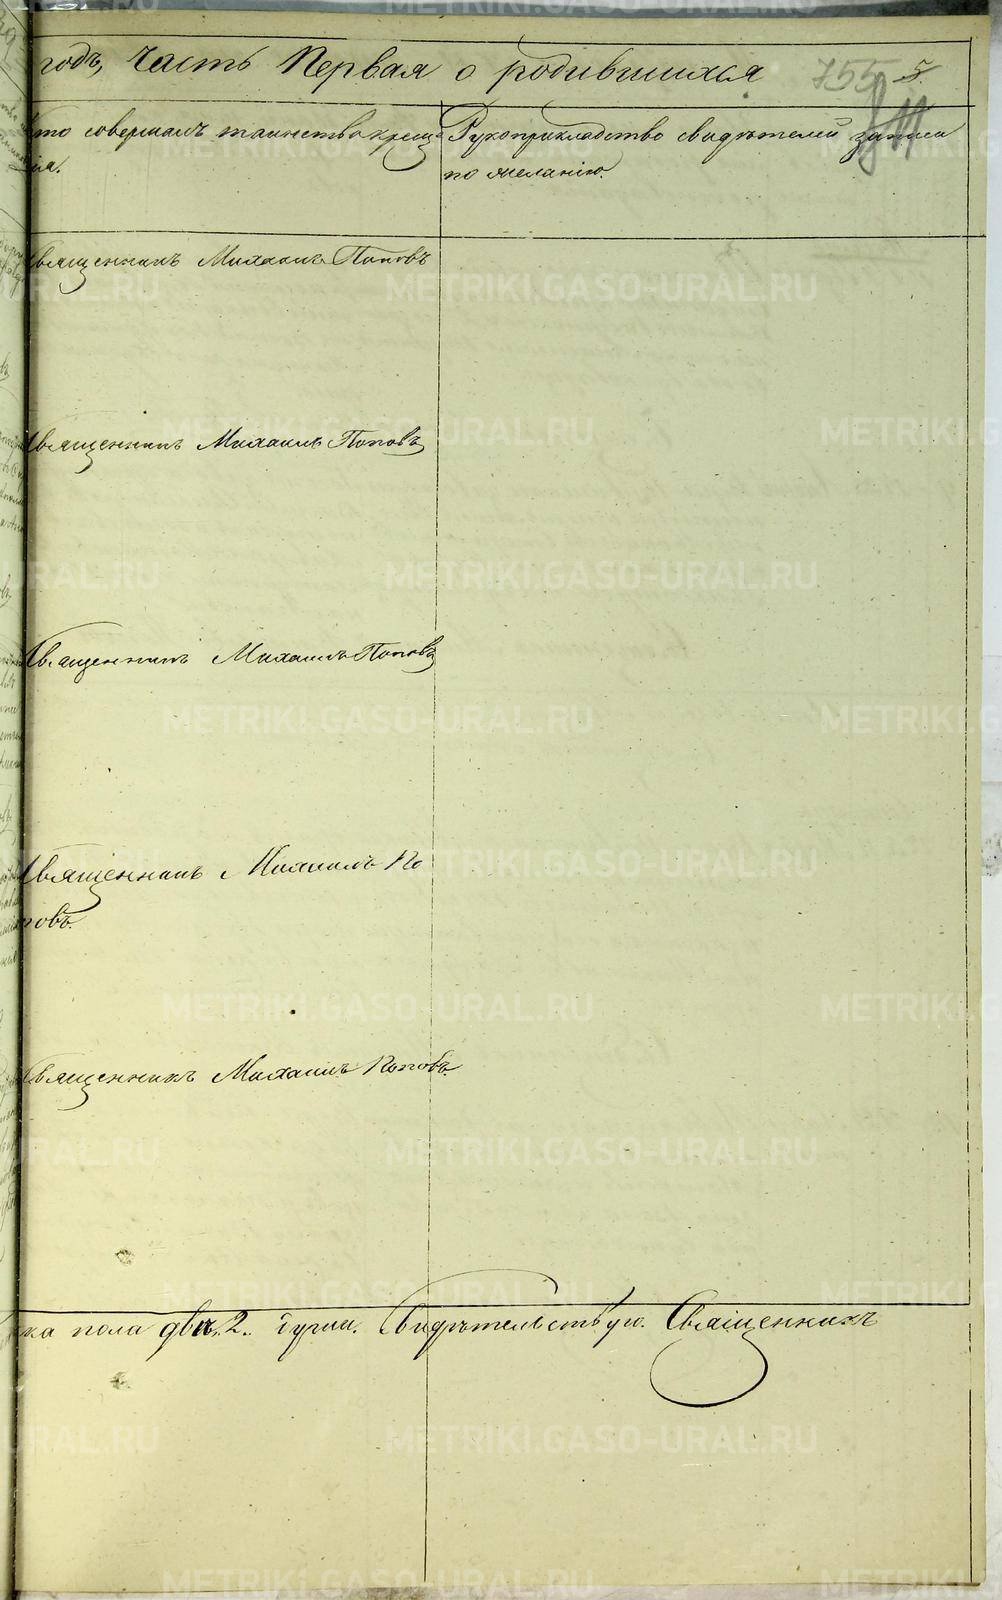 годъ, Часть Первая о родившихся 755 5
кто совершалъ таинство креще
нія.
Рукоприкладство свидѣтелей записи
по желанію.
Священникъ Михаилъ Поповъ
Священникъ Михаилъ Поповъ
Священникъ Михаилъ Поповъ
Священникъ Михаилъ По
повъ.
Священникъ Михаилъ Поповъ.
ска пола двѣ „2„ души. Свидѣтельствую. Священникъ
METRIKI.GASO-URAL.RU